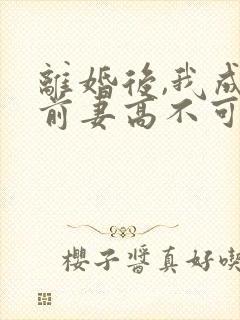 離婚後,我成
前妻高不可
櫻子醬真好喫